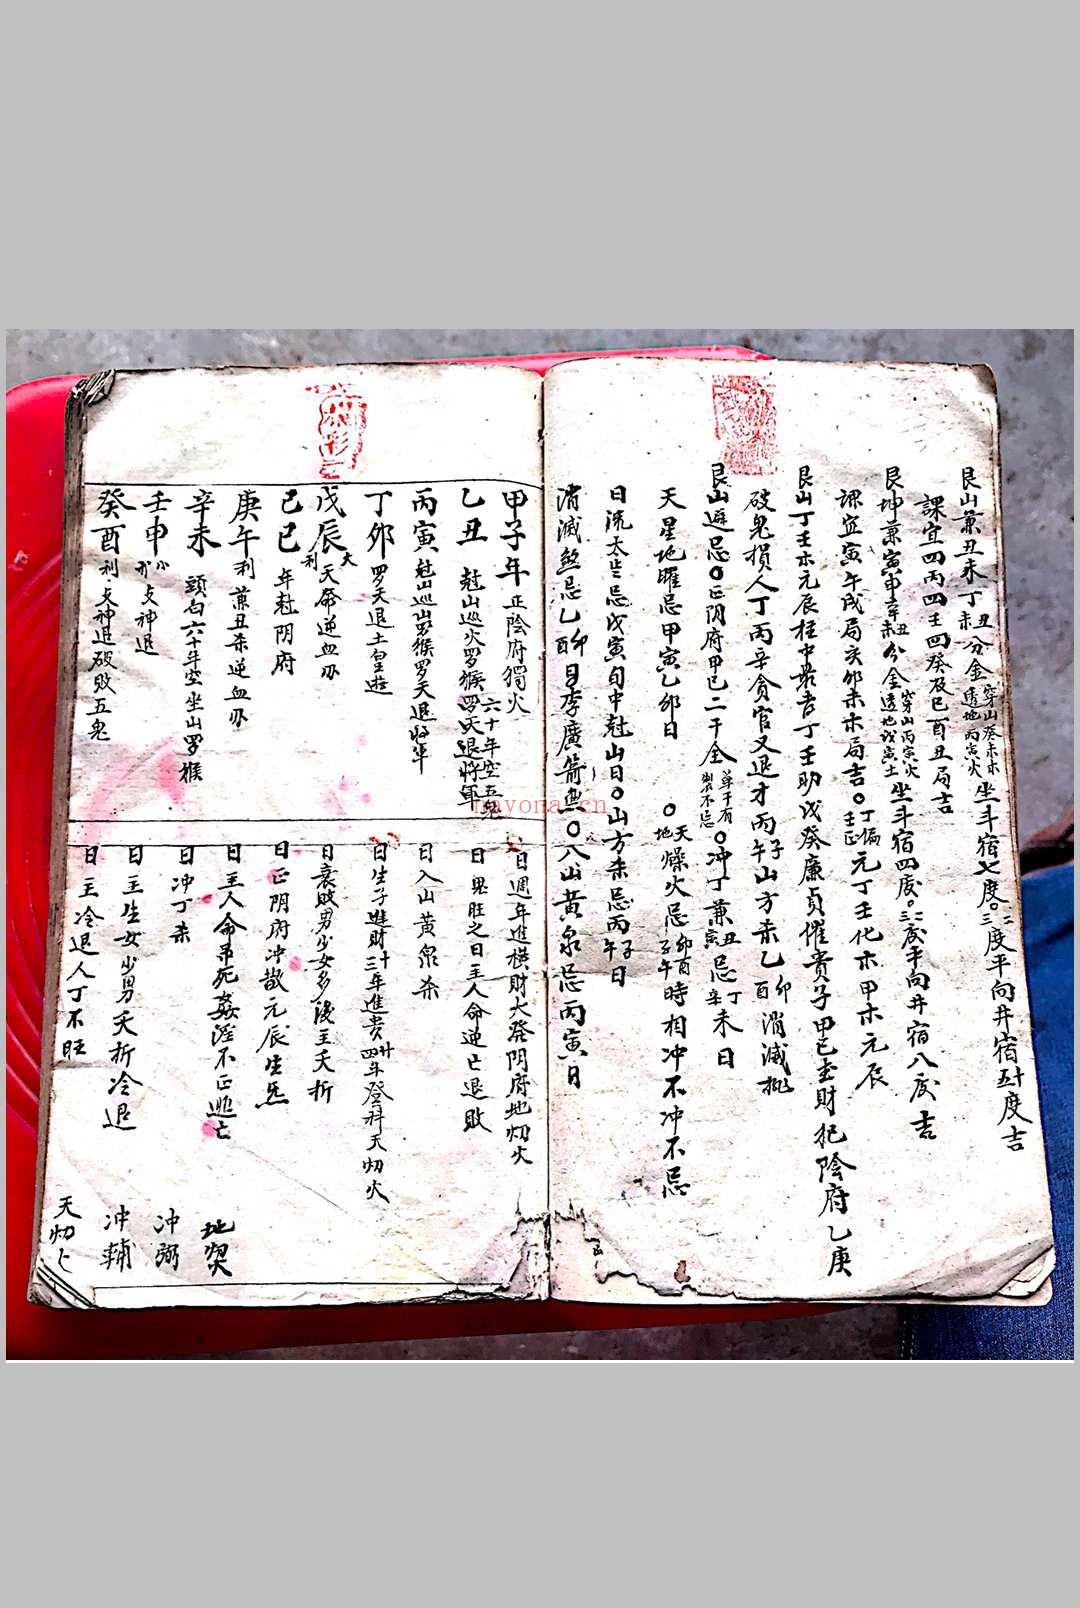 艮山兼丑未丁丑丁未分金穿山癸未木透地丙寅火坐斗宿七度〇二三度平向井宿五十度吉
課宜四丙四壬四癸及巳酉丑局吉
艮坤兼寅申辛丑辛未分金穿山丙寅火透地戊寅土坐斗宿四度〇二三度平向井宿八度吉
課宜寅午戌局亥卯未木局吉〇丁偏壬正元丁壬化木甲木元辰
艮山丁壬木元辰柱中丁壬助戊癸廉貞催貴子甲己玄財犯陰府乙庚
破鬼損人丁丙辛貪官又退才丙子午山方杀乙卯酉消滅
艮山避忌〇正阴府甲己二干全單干有製不忌〇冲丁兼丑寅忌丁辛未日
天星地曜忌甲寅乙卯日〇天地燥火忌卯酉子午時相冲不冲不忌
日流太岁忌戊寅旬中尅山日〇山方杀忌丙子午日
消滅煞忌乙卯酉日李廣箭無〇八山黄泉忌丙寅日
甲子年 正陰府獨火
乙丑 尅山巡火罗猴罗天退將軍六十年空五鬼
丙寅 尅山巡山罗猴罗天退将军
丁卯 罗天退土皇遊
戊辰 大利天命逆血刃
己巳 年尅阴府
庚午 利兼丑杀逆血刃
辛未 頭白六十年空坐山罗猴
壬申 小利支神退
癸酉 利支神退破败五鬼
日週年進横財大發阴府地火
日鬼旺之日主人命逆亡退敗
日入山黄泉杀
日生子進財卅三年進贵廿四年登科天火
日衰敗男少女多後主夭折
日正阴府冲散元辰生炁
日主人命吊死姦淫不正逃亡
日冲丁杀
日主生女少男夭折冷退
日主冷退人丁不旺
冲弼
冲輔
nayona.cn